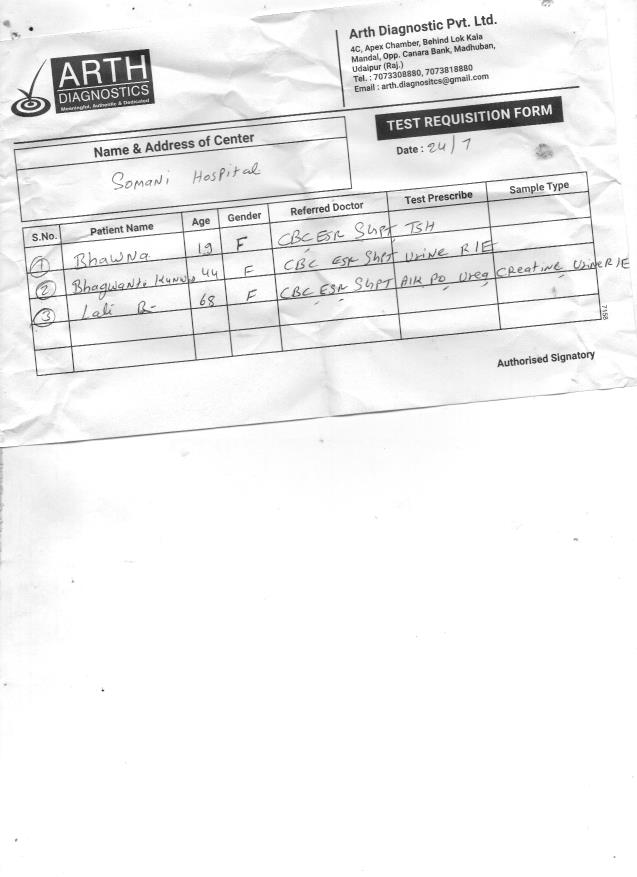 ARTH
DIAGNOSTICS
Meaningful, Authentic & Dedicated
Arth Diagnostic Pvt. Ltd.
4C, Apex Chamber, Behind Lok Kala
Mandal, Opp. Canara Bank, Madhuban,
Udaipur (Raj.)
Tel. : 7073308880, 7073818880
Email : arth.diagnositcs@gmail.com
TEST REQUISITION FORM
Name & Address of Center
Date : 24/7
Somani Hospital
S.No. Patient Name Age Gender Referred Doctor Test Prescribe Sample Type
1 Bhawna 19 F CBC ESR SHPT TSH
2 Bhagwanti Kunwr 44 F CBC ESR SHPT Urine R/E
3 Lali 68 F CBC ESR SHPT Alk Po Urea Creatine Urine R/E
7158
Authorised Signatory